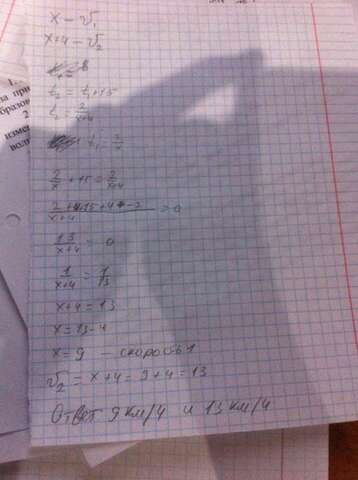 x – v₁
x+4 – v₂
t₂ = t₁+15
t₂ = 2/x+4
t₁ = 2/x
2/x + 15 = 2/x+4
= 0
13/x+4 = 0
1/x+4 = 1/13
x+4 = 13
x = 13-4
x = 9 – скорость 1
v₂ = x+4 = 9+4 = 13
Ответ 9 км/ч и 13 км/ч
1.
на при
образо
2
изме
вол